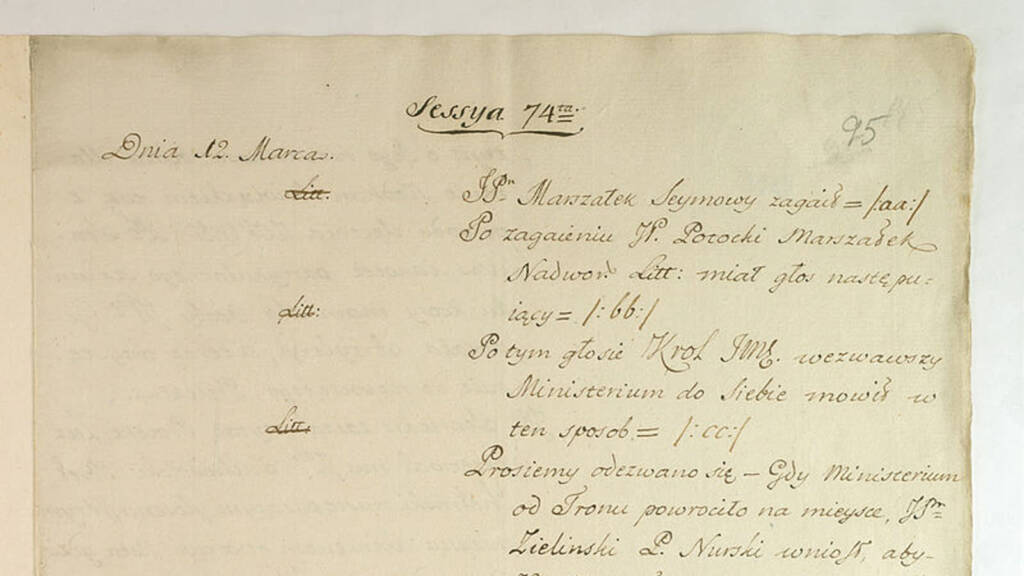 Sessya 74ta.
95
Dnia 12. Marca.
Litt. JPn Marszałek Seymowy zagaił = /:aa:/
Po zagaieniu W. Potocki Marszałek
Nadwor. Litt: miał głos nastę pu-
Litt: iący = /:bb:/
Po tym głosie Krol Jmć. wezwawszy
Ministerium do Siebie mowił w
Litt: ten sposob = /:cc:/
Prosiemy odezwano się – Gdy Ministerium
od Tronu powrociło na mieysce, JPn
Zielinski P. Nurski wniosł, aby-